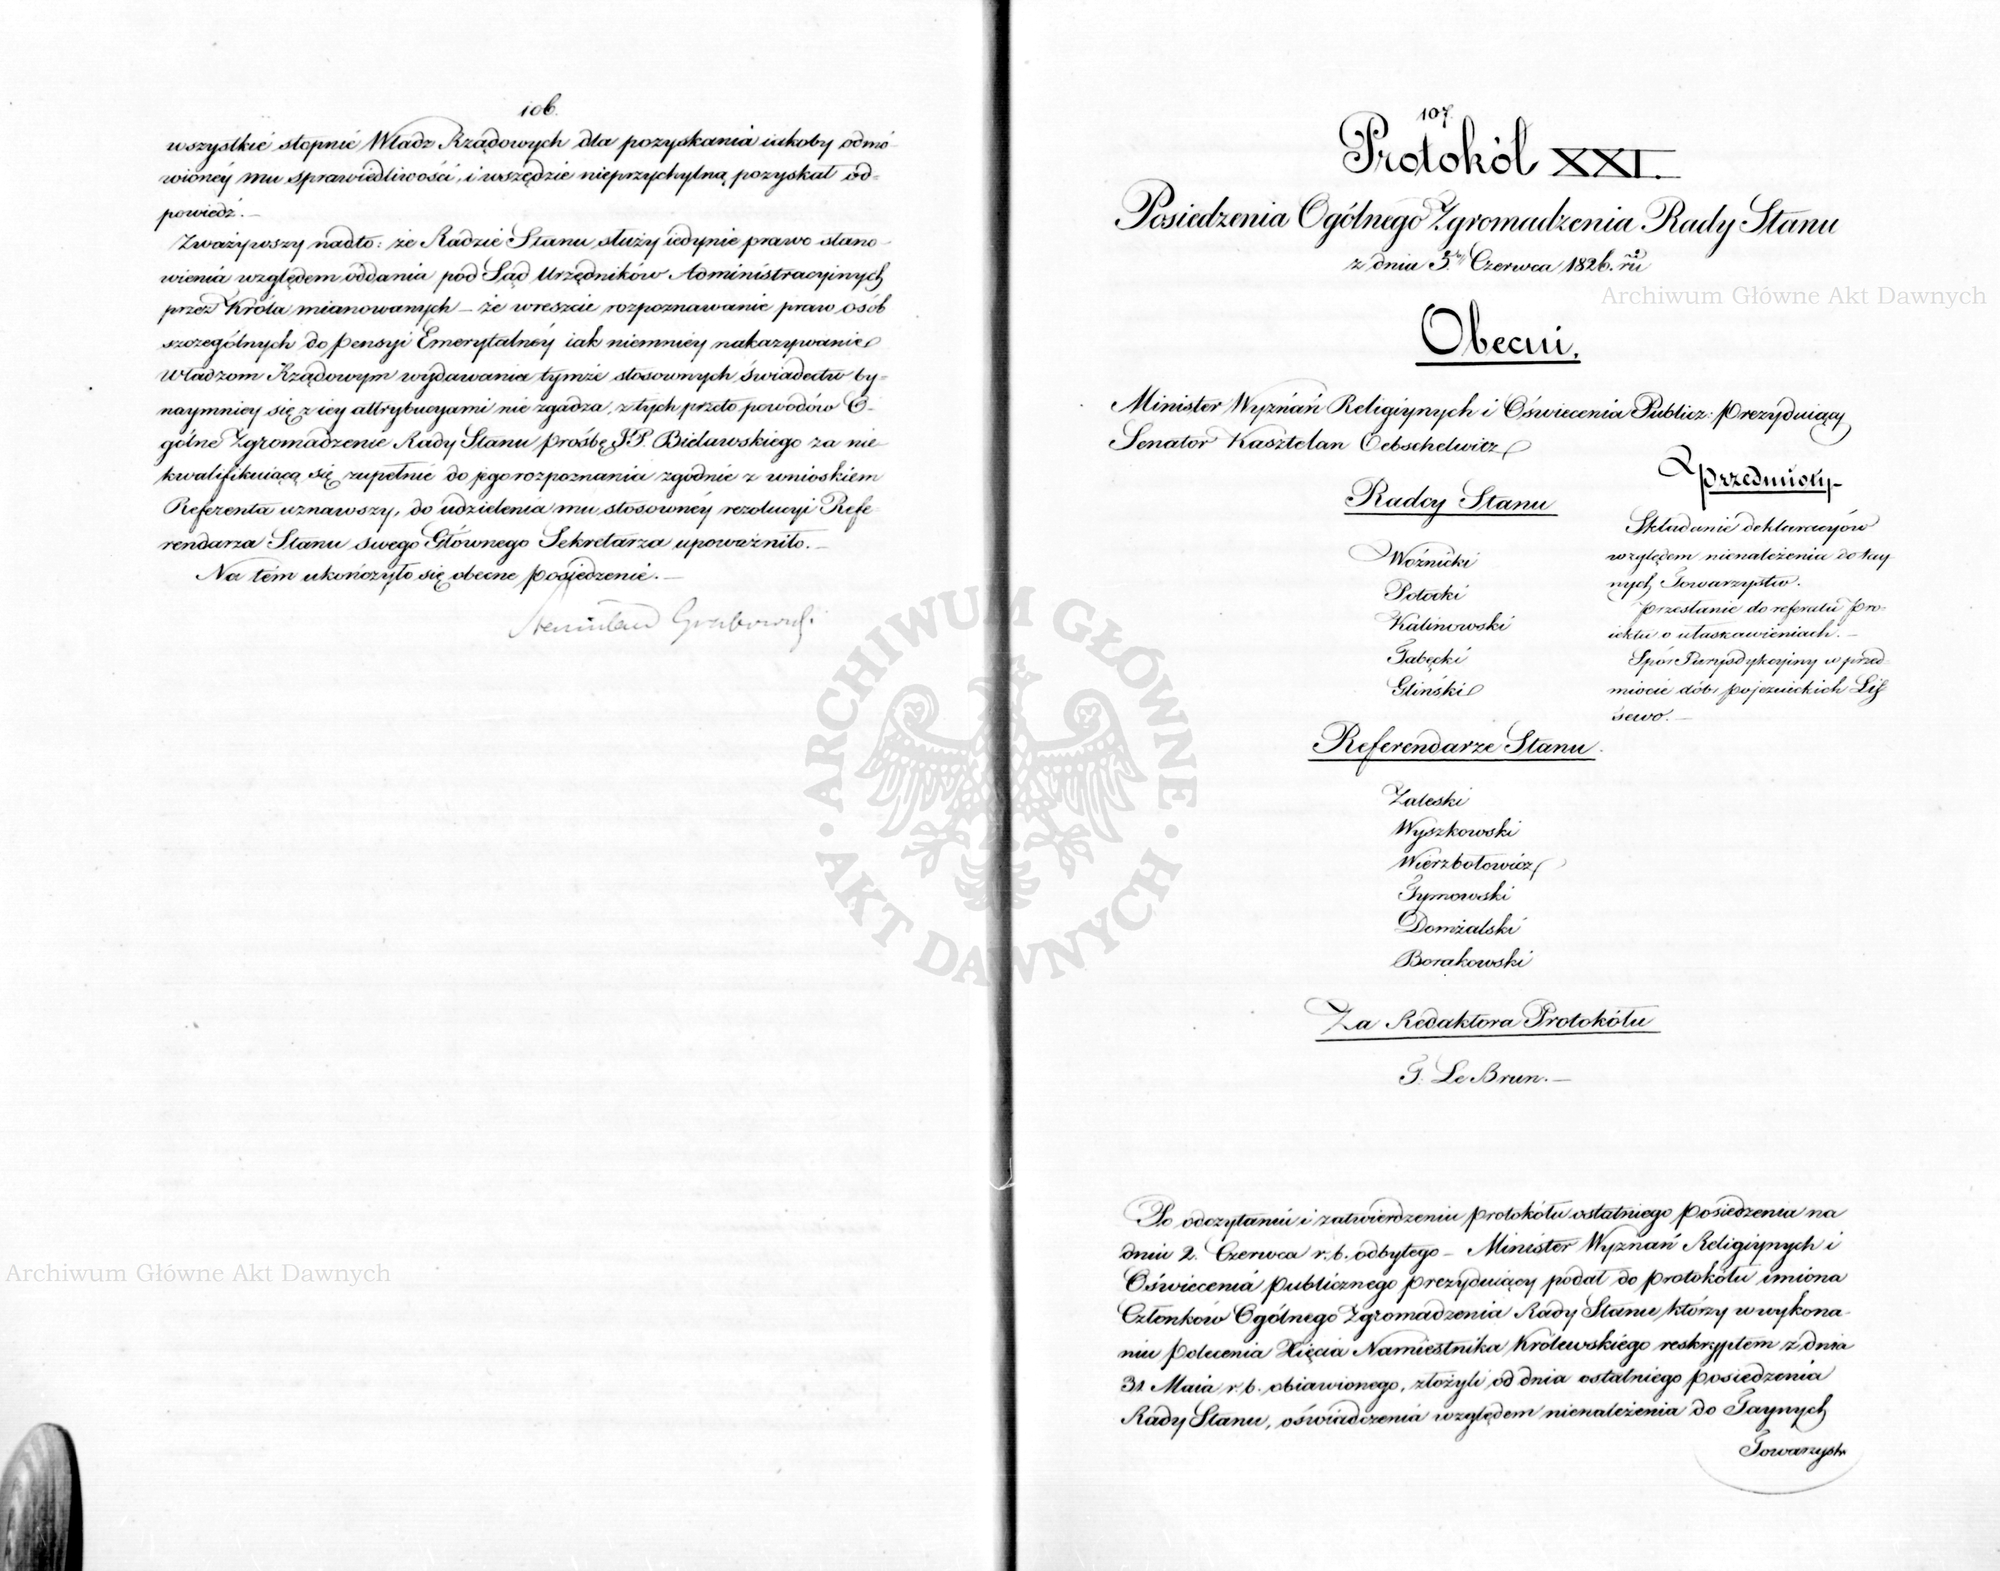 106.
wszystkie stopnie Władz Rządowych dla pozyskania iakoby odmó-
wioney mu sprawiedliwości, i wszędzie nieprzychylną pozyskał od-
powiedź.—
Zważywszy nadto: że Radzie Stanu służy iedynie prawo stano-
wienia względem oddania pod Sąd Urzędników Administracyinych
przez Króla mianowanych — że wreszcie rozpoznawanie praw osób
szczególnych do pensyi Emerytalnéy iak niemniéy nakazywanie
Władzom Rządowym wydawania tymże stosownych świadectw by-
naymniey się z iey attrybucyami nie zgadza, z tych przeto powodów O-
gólne Zgromadzenie Rady Stanu prośbę JP. Bielawskiego za nie
kwalifikuiącą się zupełnie do jego rozpoznania zgodnie z wnioskiem
Referenta uznawszy, do udzielenia mu stosownéy rezolucyi Refe-
rendarza Stanu swego Głównego Sekretarza upoważniło.—
Na tém ukończyło się obecne posiedzenie.—
Stanisław Grabowski
107.
Protokół XXI.
Posiedzenia Ogólnego Zgromadzenia Rady Stanu
z dnia 3. Czerwca 1826. rú
Obecni.
Minister Wyznań Religiynych i Oświecenia Publicz: prezyduiący
Senator Kasztelan Oebschelwitz
Radcy Stanu
Woźnicki
Potocki
Kalinowski
Tabęcki
Gliński
Przedmioty
Składanie deklaracyów
względem nienależenia do tay
nych Towarzystw.
Przesłanie do referatu Pro-
iektu o ułaskawieniach.—
Spór Jurysdykcyiny w przed-
miocie dóbr pojezuickich Lis
sewo.—
Referendarze Stanu.
Zaleski
Wyszkowski
Wierzbołowicz
Tymowski
Domżalski
Borakowski
Za Redaktora Protokółu
T. Le Brun.—
Po odczytaniu i zatwierdzeniu protokółu ostatniego posiedzenia na
dniu 2. Czerwca r. b. odbytego — Minister Wyznań Religiynych i
Oświecenia publicznego prezyduiący podał do protokółu imiona
Członków Ogólnego Zgromadzenia Rady Stanu którzy w wykona-
niu polecenia Xięcia Namiestnika Królewskiego reskryptem z dnia
31 Maia r. b. obiawionego, złożyli od dnia ostatniego posiedzenia
Rady Stanu, oświadczenia względem nienależenia do Taynych
Towarzystw
Archiwum Główne Akt Dawnych
Archiwum Główne Akt Dawnych
ARCHIWUM GŁÓWNE · AKT DAWNYCH ·